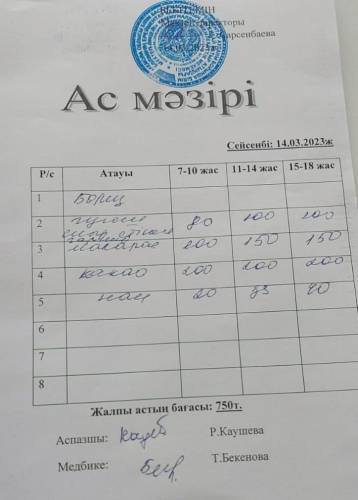 БЕКІТЕМІН
Мектеп директоры
Сарсенбаева
14.03.2023ж
Ас мәзірі
Сейсенбі: 14.03.2023ж
Р/с Атауы 7-10 жас 11-14 жас 15-18 жас
1 Борщ
2 80 100 100
гарнир
3 макарон 200 150 150
4 какао 200 200 200
5 нан 20 35 40
6
7
8
Жалпы астың бағасы: 750т.
Аспазшы: Р.Каушева
Медбике: Т.Бекенова